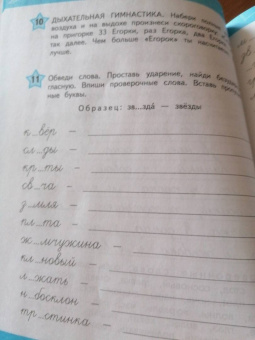 10 ДЫХАТЕЛЬНАЯ ГИМНАСТИКА. Набери
воздуха и на выдохе произнеси скороговорку:
на пригорке 33 Егорки, раз Егорка, два
так далее. Чем больше «Егорок» ты
лучше.
11 Обведи слова. Проставь ударение, найди
гласную. Впиши проверочные слова. Вставь
ные буквы.
Образец: зв...зда́ — звёзды
к...вёр –
сл...ды –
кр...ты –
св...ча –
д...мля –
пл...та –
ж...мчужина –
кл...новый –
л...жать –
н...босклон –
тр...стинка –